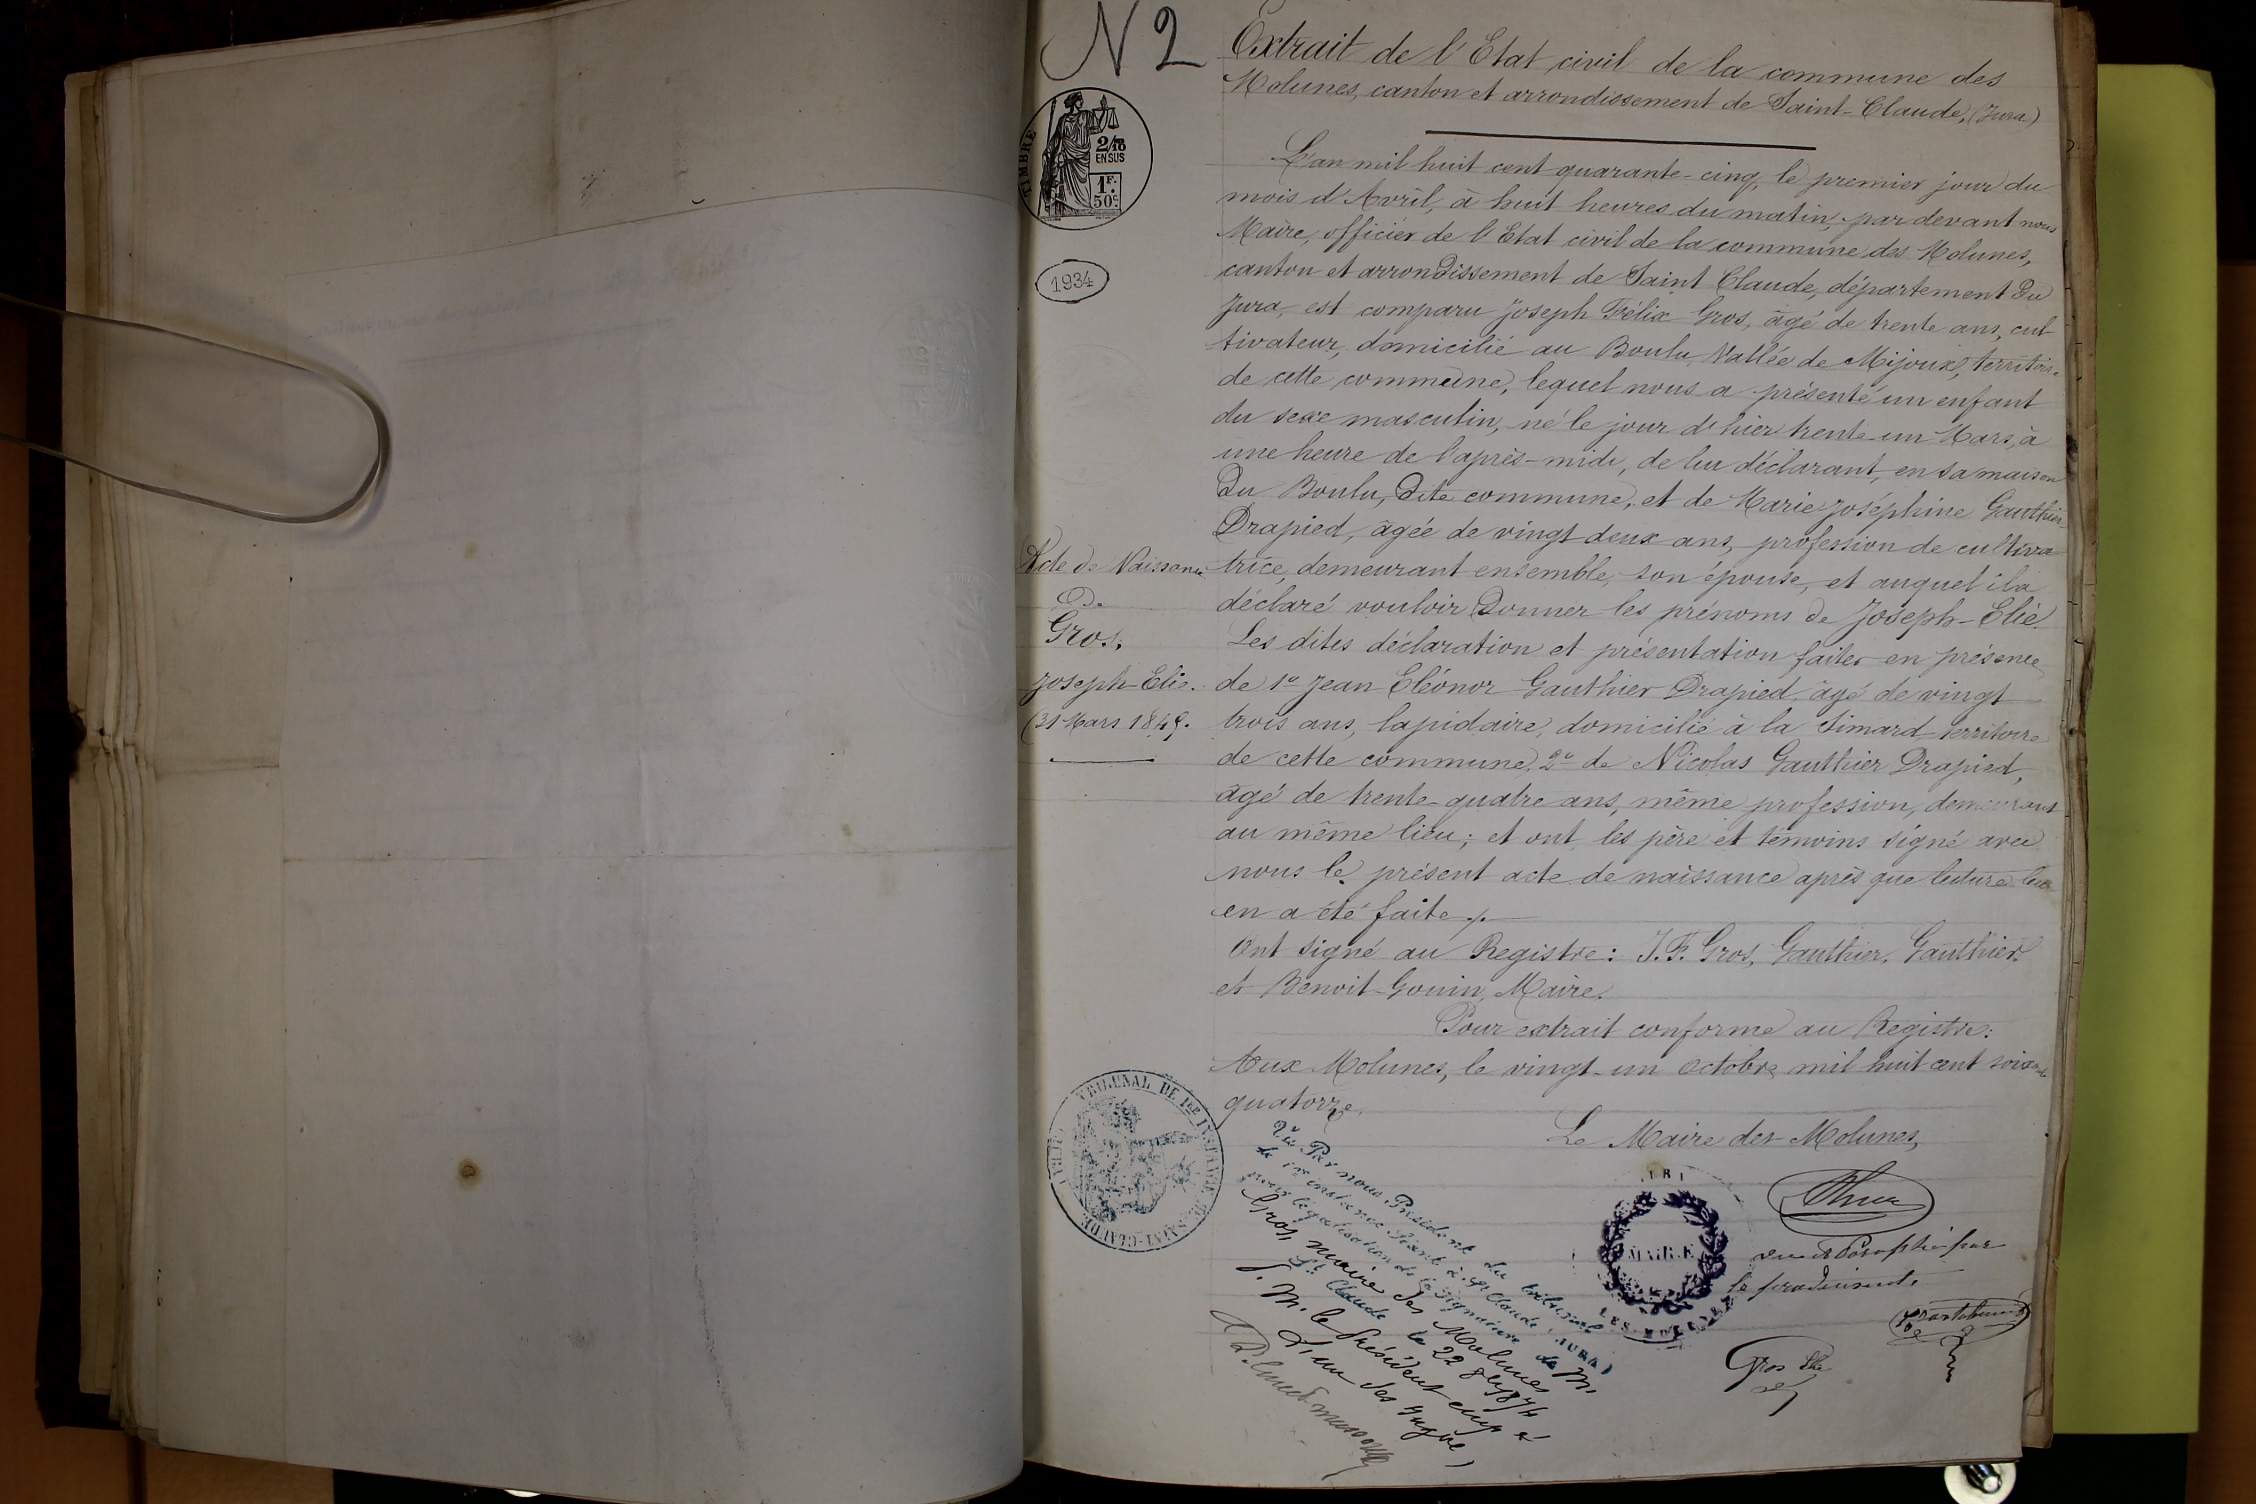 N 2
Extrait de l'Etat civil de la commune des
Molunes, canton et arrondissement de Saint-Claude, (Jura)
TIMBRE
2/10
EN SUS
1F.
50c
1934
L'an mil huit cent quarante-cinq, le premier jour du
mois d'Avril, à huit heures du matin, par devant nous
Maire, officier de l'Etat civil de la commune des Molunes,
canton et arrondissement de Saint Claude, département du
Jura, est comparu Joseph Félix Gros, âgé de trente ans, cul-
tivateur, domicilié au Boulu Vallée de Mijoux, territoire
de cette commune, lequel nous a présenté un enfant
du sexe masculin, né le jour d'hier trente-un Mars, à
une heure de l'après-midi, de lui déclarant, en sa maison
du Boulu, dite commune, et de Marie Joséphine Gauthier-
Drapied, âgée de vingt deux ans, profession de cultiva-
trice, demeurant ensemble, son épouse, et auquel il a
déclaré vouloir donner les prénoms de Joseph-Elie.
Les dites déclaration et présentation faites en présence
de 1° Jean Eléonor Gauthier Drapied, âgé de vingt
trois ans, lapidaire, domicilié à la Simard territoire
de cette commune, 2° de Nicolas Gauthier Drapied,
âgé de trente-quatre ans, même profession, demeurant
au même lieu; et ont les père et témoins signé avec
nous le présent acte de naissance après que lecture leur
en a été faite ./.
Ont signé au Registre: J. F. Gros, Gauthier, Gauthier
et Benoit-Gonin, Maire.
Acte de Naissance
De
Gros,
Joseph-Elie.
(31 Mars 1845.
Pour extrait conforme au Registre:
Aux Molunes, le vingt-un octobre mil huit cent soixante
quatorze.
Le Maire des Molunes,
TRIBUNAL DE 1ER INSTANCE DE SAINT-CLAUDE (JURA)
Vu Par nous, Président du tribunal
de 1re instance séant à St Claude (JURA)
pour légalisation de la signature de M.
Gros, maire des Molunes
St Claude le 22 8bre 1874
P. M. le Président empê
L'un des Juges,
MAIRIE
LES-MOLUNES
vu et Paraphé par
le président,
Gros